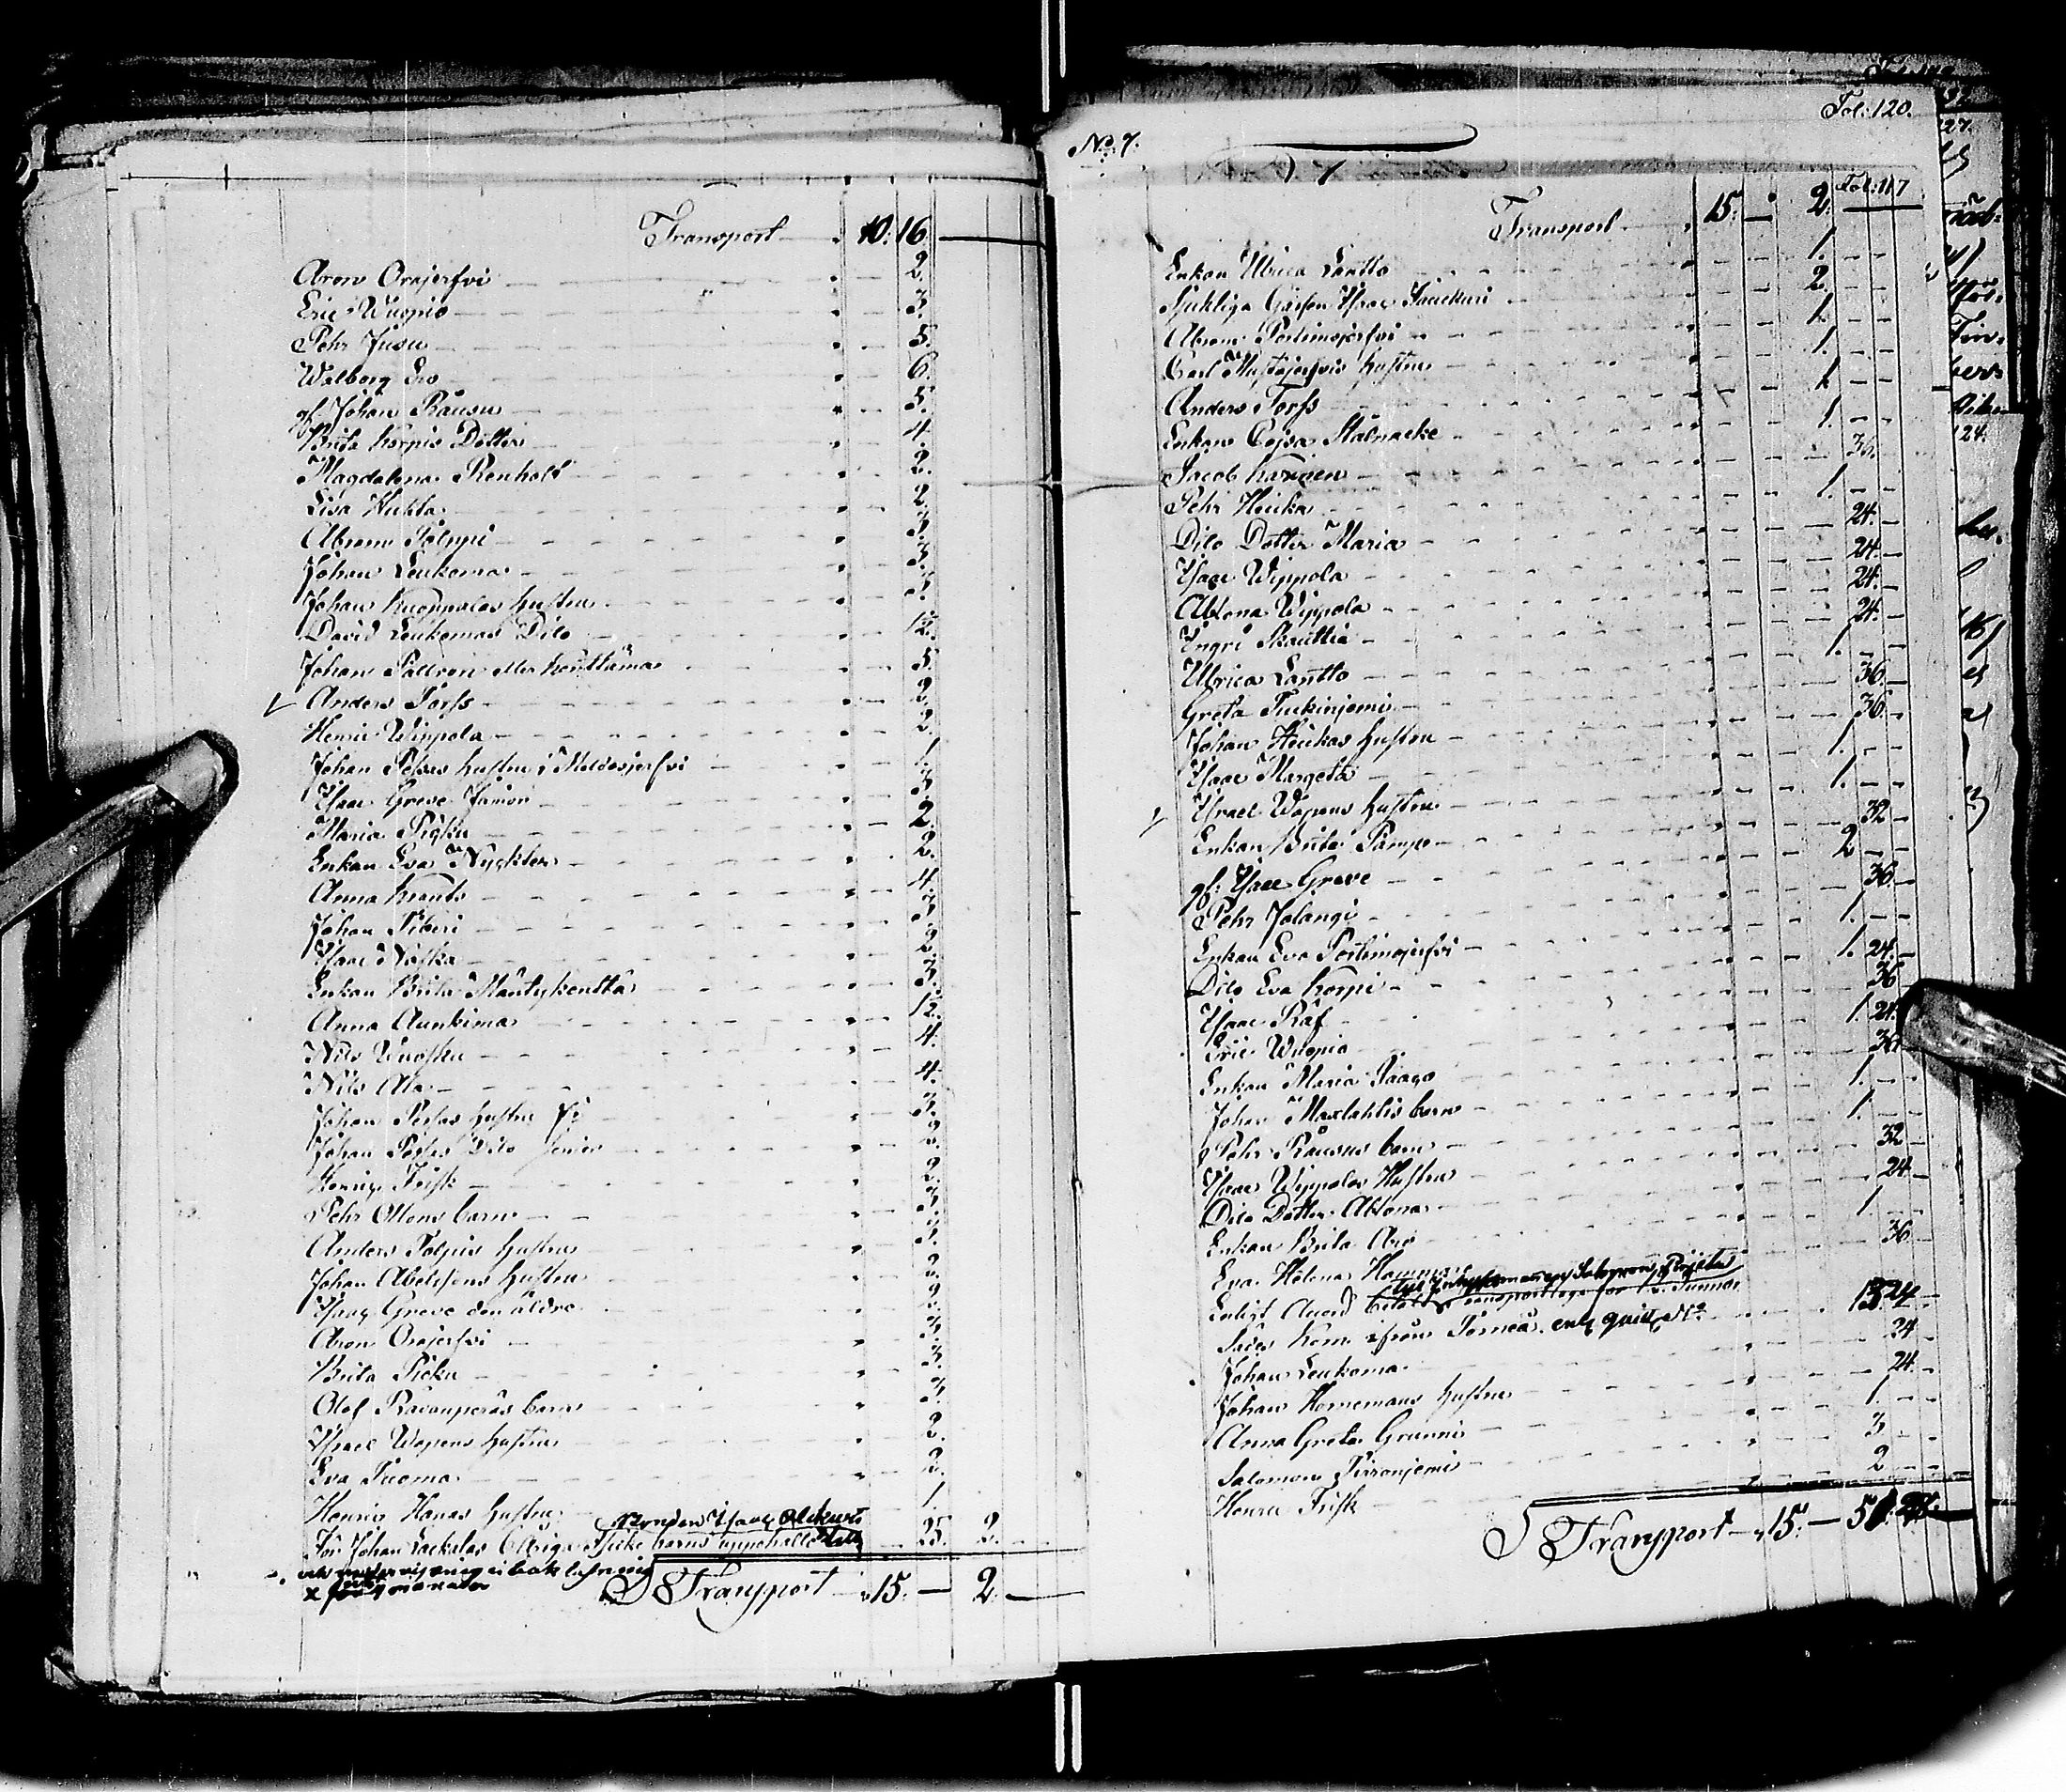 Transport 10. 16.
Aron Orajerfvi 2.
Eric Wuopio 3.
Pehr Jusu 5.
Walborg Ero 6.
gl: Johan Räusu 5.
Brita Korpis Dotter 4.
Magdalena Renholt 2.
Lisa Huhta 2.
Abram Tolppi 3.
Johan Leukoma 3.
Johan Kuoppalas hustru 3.
David Leukomas Dito 12.
Johan Pallron eller Kenttämaa 5.
Anders Torfs 2.
Henric Wippola 2.
Johan Pesas hustru i Meldosjerfvi 1.
Isaac Greve Junior 3.
Maria Picku 2.
Enkan Eva Nyckler 2.
Anna Krants 4.
Johan Piberi 3.
Isaac Naska 2.
Enkan Brita Mäntykenttä 3.
Anna Aunkima 12.
Nils Wuosku 4.
Nils Ala 4.
Johan Pesas hustru 3.
Johan Pesas Dito Senior 2.
Henric Frisk 2.
Pehr Ollens barn 3.
Anders Tolpis hustru 3.
Johan Abelssons hustru 2.
Isaac Greve den äldre 2.
Aron Orajerfvi 3.
Brita Picku 3.
Olof Rävanperäs barn 3.
Israel Wopens hustru 2.
Eva Tuoma 2.
Henric Hanas hustru 1.
Bonden Isaac
För Johan Lackulas barns uppehälle 25. 2.
Transport 15. — 2. —
No: 7.
Fol: 120.
Fol: 117
Transport 15. — 2. —
Enkan Ulrica Lantto 1.
Sjukliga Gossen Isaac 2.
Abram Portimojerfvi 1.
Carl Mustajerfvis hustru 1.
Anders Torfs 1.
Enkan Cajsa Stålnacke 1.
Jacob Karinen 36.
Pehr Heuka 1.
Dito Dotter Maria 24.
Isaac Wippola 24.
Ablona Wippola 24.
Engri Skauttia 24.
Ulrica Lantto 1.
Greta Turkinjemi 36.
Johan Heukas hustru 36.
Isaac Margeta 1.
Israel Wopens hustru 1.
Enkan Brita Pämpo 32
gl: Isaac Greve 2
Pehr Jolangi 36.
Enkan Eva Portimojerfvi 1.
Dito Eva Korpi 1. 24.
Isaac Räf 36
Eric Wuopio 1. 24.
Enkan Maria Jaago 36
Johan Maxlahtis barn 1.
Pehr Räusus barn 1.
Isaac Wippolas Hustru 32
Dito Dotter Ablona 24
Enkan Brita Aro 1
Eva Helena Hamma 36
Enligt Accord betalt
hem ifrån Torneå enl quitt No 13. 24
Johan Leukoma 24
Johan Hornemans hustru 24.
Anna Greta Grunni 1.
Salomon Pirronjemi 3.
Henric Frisk 2
Transport 15. —